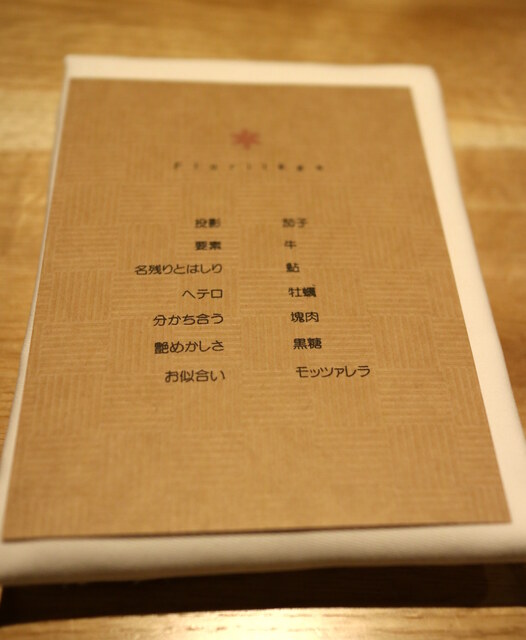 Florilège
投影 茄子
要素 牛
名残りとはしり 鮎
ヘテロ 牡蠣
分かち合う 塊肉
艶めかしさ 黒糖
お似合い モッツァレラ